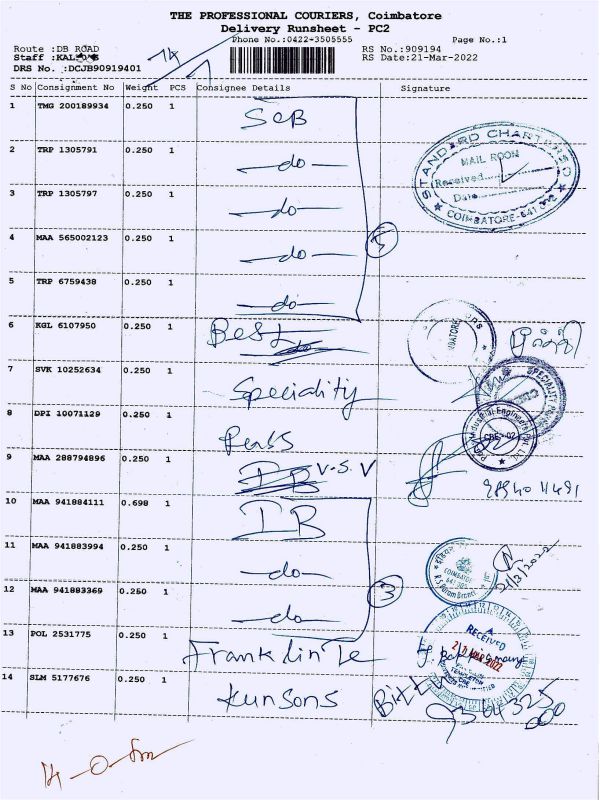 THE PROFESSIONAL COURIERS, Coimbatore
Delivery Runsheet - PC2
Phone No.:0422-3505555 Page No.:1
Route :DB ROAD RS No.:909194
Staff : RS Date:21-Mar-2022
DRS No. :DCJB90919401
S No Consignment No Weight PCS Consignee Details Signature
1 TMG 200189934 0.250 1 SCB
2 TRP 1305791 0.250 1 -do-
3 TRP 1305797 0.250 1 -do-
4 MAA 565002123 0.250 1 -do-
5 TRP 6759438 0.250 1 -do-
5
STANDARD CHARTERED
MAIL ROOM
Received
Date
COIMBATORE-641
6 KGL 6107950 0.250 1 Best
7 SVK 10252634 0.250 1 Speciality
8 DPI 10071129 0.250 1
9 MAA 288794896 0.250 1 V.S.V
10 MAA 941884111 0.698 1 IB
11 MAA 941883994 0.250 1 -do-
12 MAA 941883369 0.250 1 -do-
3
21/3/2022
13 POL 2531775 0.250 1 Franklin Te
RECEIVED
14 SLM 5177676 0.250 1 Kunsons